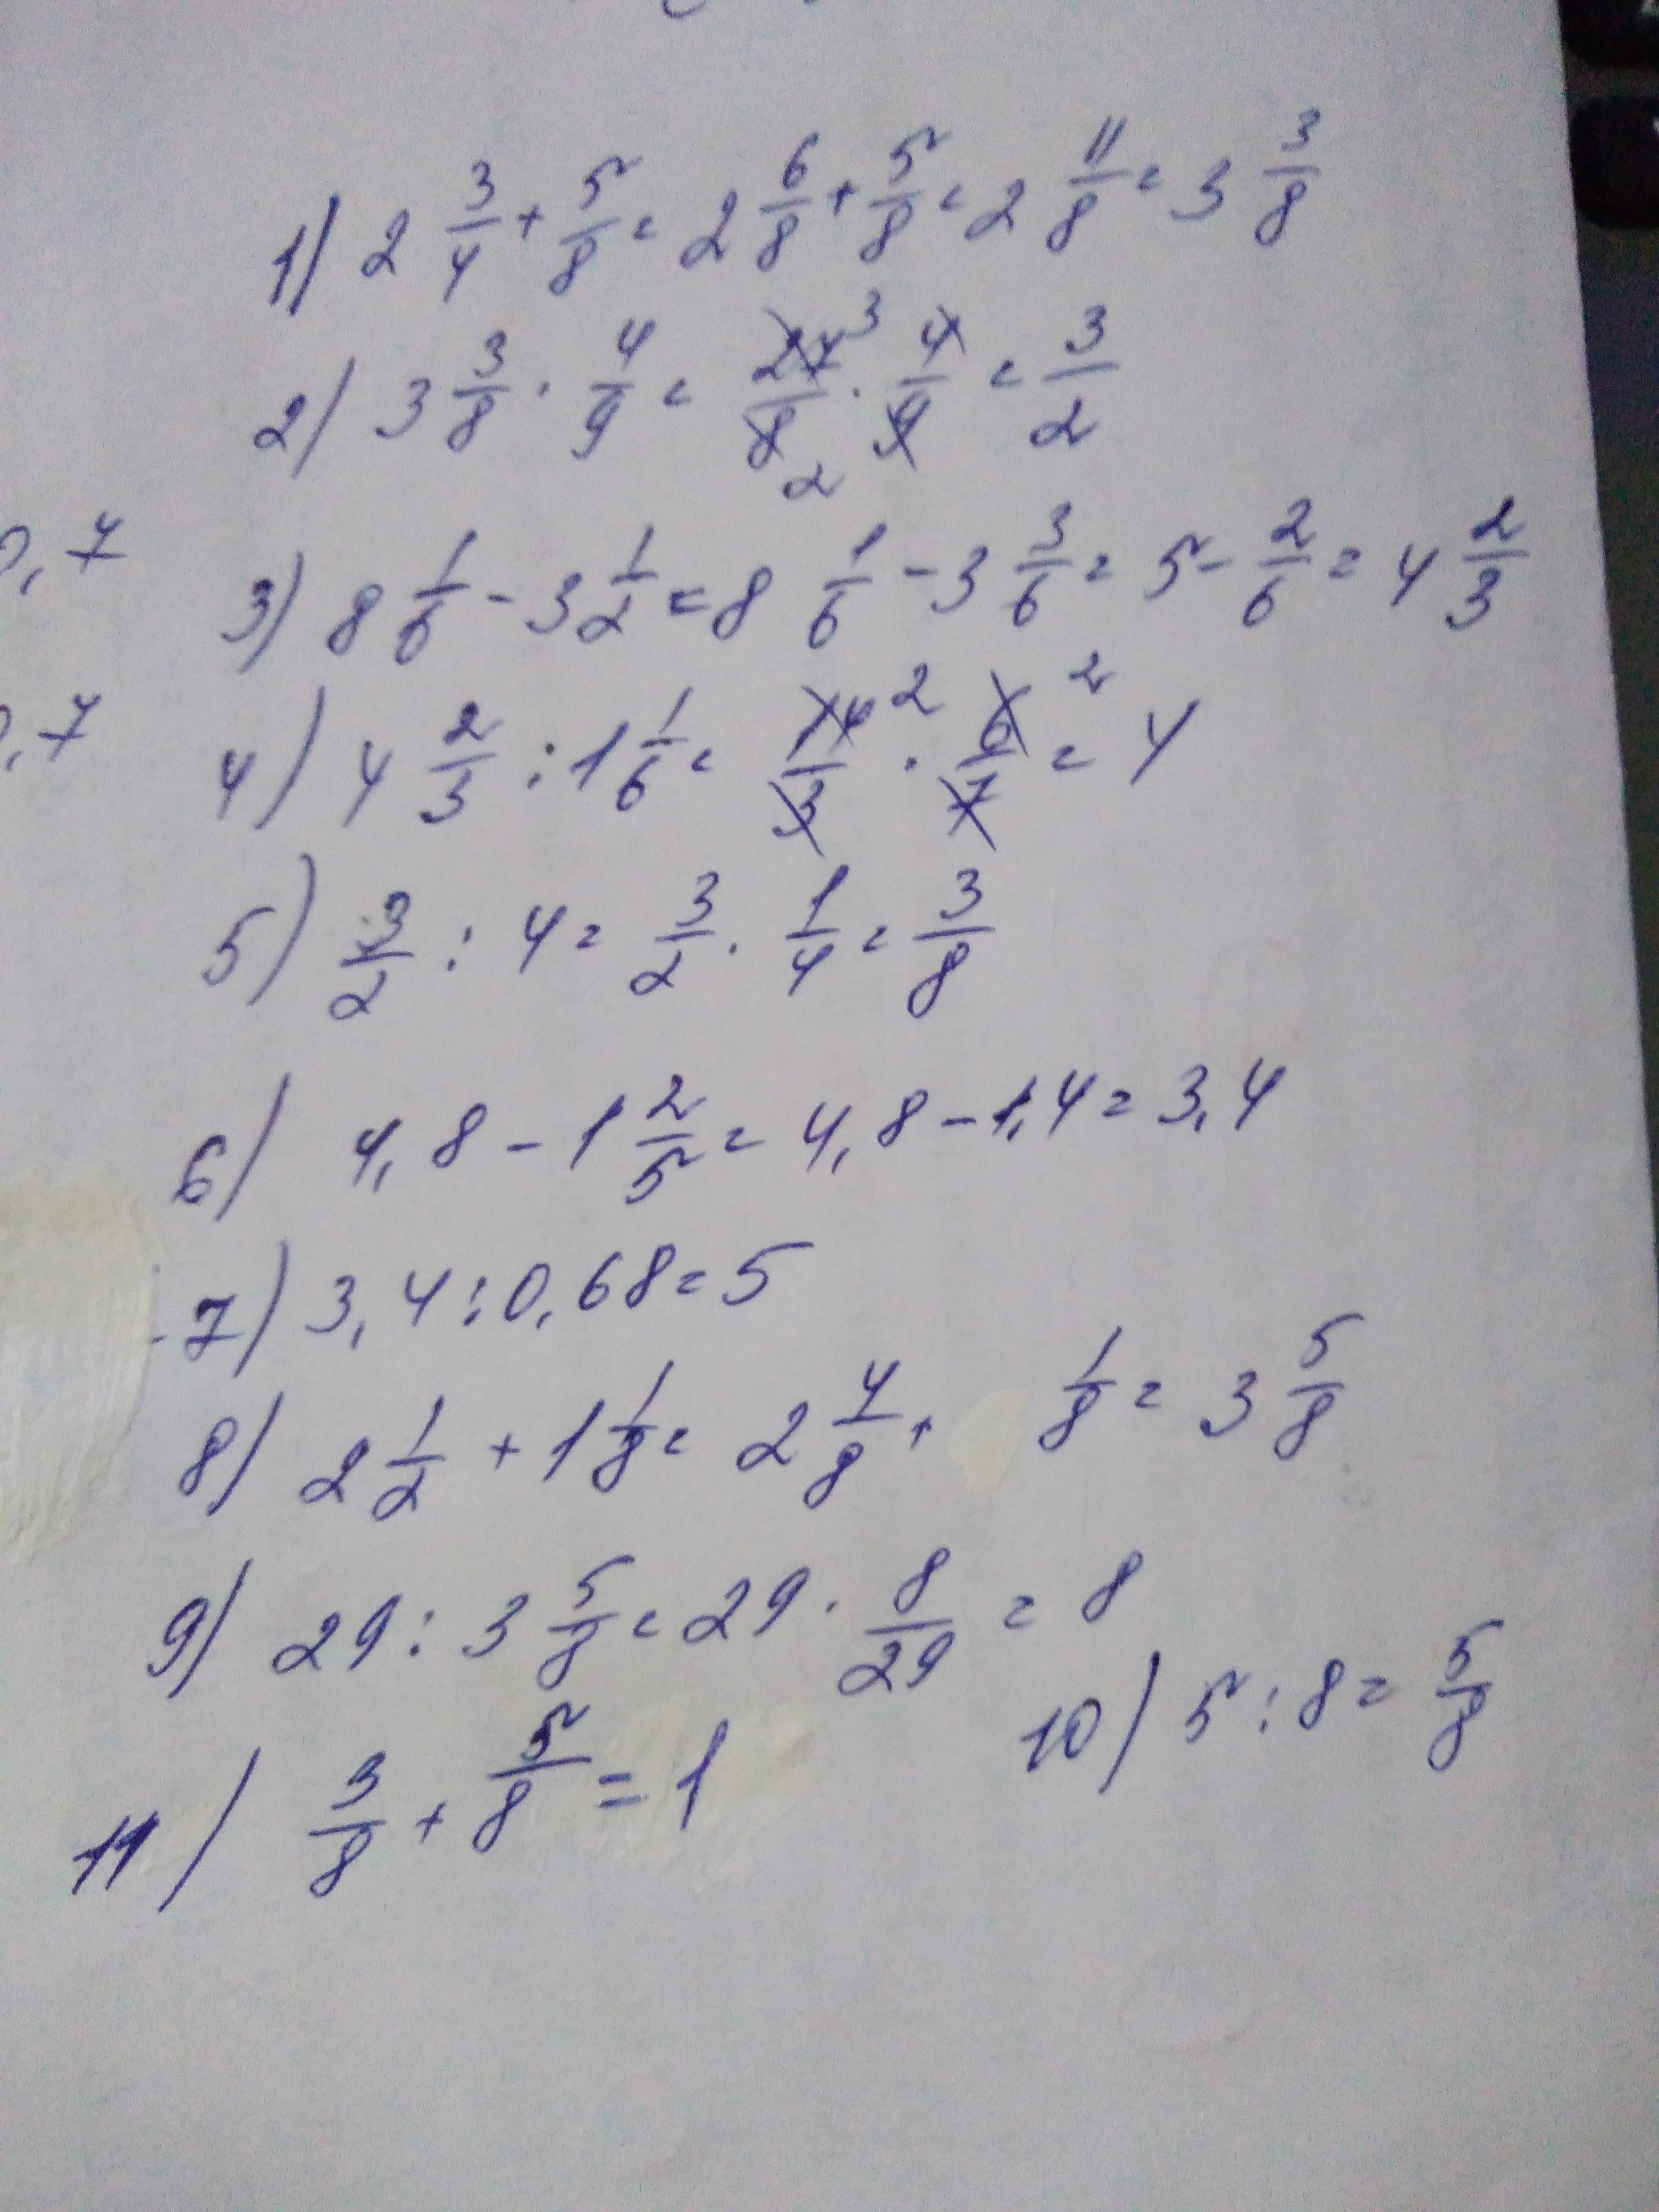 1) 2 3/4 + 5/8 = 2 6/8 + 5/8 = 2 11/8 = 3 3/8
2) 3 3/8 · 4/9 = 27/8 · 4/9 = 3/2
3
2
0,7
3) 8 1/6 - 3 1/2 = 8 1/6 - 3 3/6 = 5 - 2/6 = 4 2/3
0,7
4) 4 2/3 : 1 1/6 = 14/3 · 6/7 = 4
2 2
5) 3/2 : 4 = 3/2 · 1/4 = 3/8
6) 4,8 - 1 2/5 = 4,8 - 1,4 = 3,4
7) 3,4 : 0,68 = 5
8) 2 1/2 + 1 1/8 = 2 4/8 + 1/8 = 3 5/8
9) 29 : 3 5/8 = 29 · 8/29 = 8
10) 5 : 8 = 5/8
11) 3/8 + 5/8 = 1